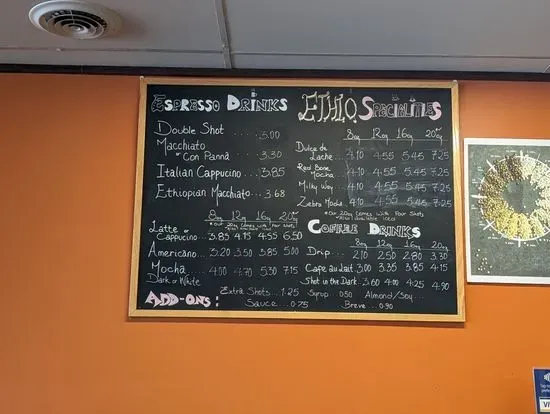 Espresso Drinks
Double Shot .... 3.00
Macchiato
or Con Panna ... 3.30
Italian Cappucino ... 3.85
Ethiopian Macchiato... 3.68
8oz 12oz 16oz 20oz
Latte or
Cappucino... 3.85 4.15 4.55 6.50
Americano... 3.20 3.50 3.85 5.00
Mocha 4.00 4.70 5.30 7.15
Dark or White
ETHIO Specialities
8oz 12oz 16oz 20oz
Dulce de
Lache... 4.10 4.55 5.45 7.25
Red Bone
Mocha 4.10 4.55 5.45 7.25
Milky Way... 4.10 4.55 5.45 7.25
Zebra Mocha. 4.10 4.55 5.45 7.25
*Our 20oz Comes with Four Shots
*Also available iced
Coffee Drinks
8oz 12oz 16oz 20oz
Drip... 2.10 2.50 2.80 3.30
Cafe au Lait. 3.00 3.35 3.85 4.15
Shot in the Dark. 3.60 4.00 4.25 4.90
Add-ons:
Extra Shots... 1.25 Syrup 0.50 Almond/Soy...
Sauce... 0.75 Breve... 0.90